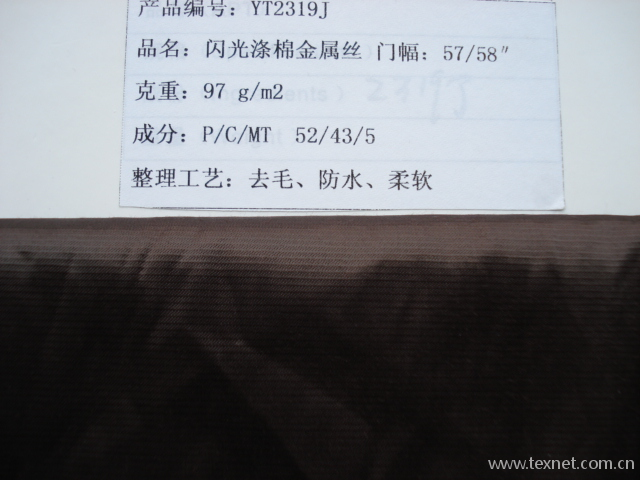 产品编号: YT2319J
品名: 闪光涤棉金属丝 门幅: 57/58″
克重: 97 g/m2
成分: P/C/MT 52/43/5
整理工艺: 去毛、防水、柔软
www.texnet.com.cn